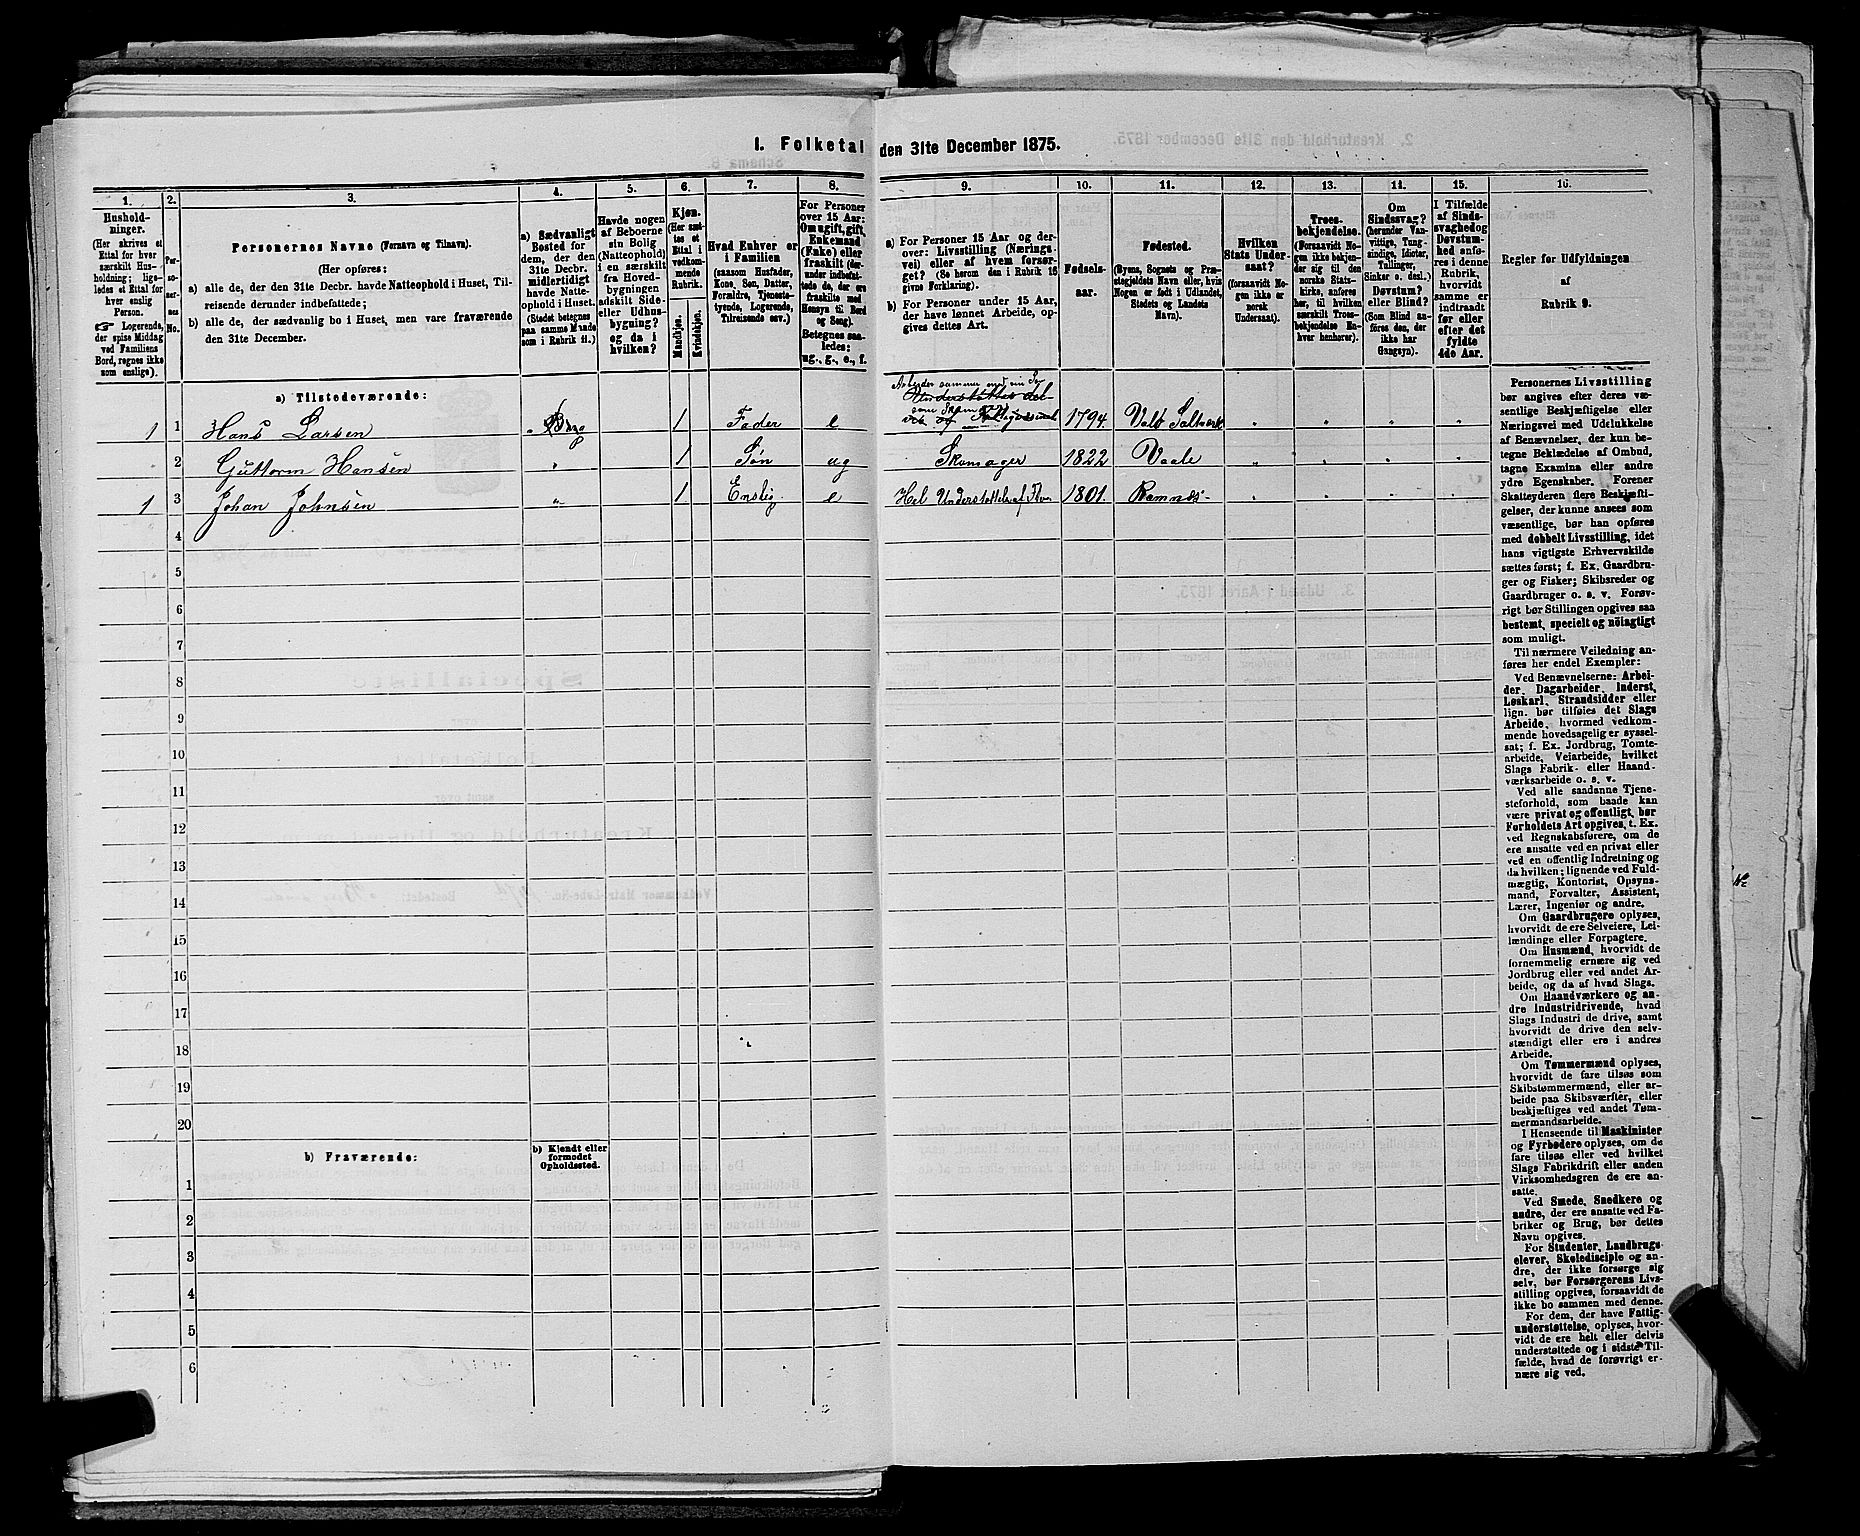 I. Folketal den 31te December 1875.
1. 2. 3. 4. 5. 6. 7. 8. 9. 10. 11. 12. 13. 14. 15. 16.
Hushold-
ninger.
(Her skrives et
Ettal for hver
særskilt Hus-
holdning; lige-
ledes et Ettal for
hver enslig
Person.
☞ Logerende,
der spise Middag
ved Familiens
Bord, regnes ikke
som enslige).
Per-
so-
ner-
nes
No.
Personernes Navne (Fornavn og Tilnavn).
(Her opføres:
a) alle de, der den 31te Decbr. havde Natteophold i Huset, Til-
reisende derunder indbefattede;
b) alle de, der sædvanlig bo i Huset, men vare fraværende
den 31te December.
a) Sædvanligt
Bosted for
dem, der den
31te Decbr.
midlertidigt
havde Natte-
ophold i Huset.
(Stedet betegnes
paa samme Maade
som i Rubrik 11.)
Havde nogen
af Beboerne
sin Bolig
(Natteophold)
i en særskilt
fra Hoved-
bygningen
adskilt Side-
eller Udhus-
bygning?
og da i
hvilken?
Kjøn.
(Her sæt-
tes et
Ettal i
vedkom-
mende
Rubrik.
Mandkjøn.
Kvindekjøn.
Hvad Enhver er
i Familien
(saasom Husfader,
Kone, Søn, Datter,
Forældre, Tjeneste-
tyende, Logerende,
Tilreisende osv.)
For Personer
over 15 Aar:
Om ugift, gift,
Enkemand
(Enke) eller
fraskilt (der-
under indbefat-
tede de, der ere
fraskilte med
Hensyn til Bord
og Seng).
Betegnes saa-
ledes:
ug., g., e., f.
a) For Personer 15 Aar og der-
over: Livsstilling (Nærings-
vei) eller af hvem forsør-
get? (Se herom den i Rubrik 16
givne Forklaring).
b) For Personer under 15 Aar,
der have lønnet Arbeide, op-
gives dettes Art.
Fødsels-
aar.
Fødested.
(Byens, Sognets og Præ-
stegjeldets Navn eller, hvis
Nogen er født i Udlandet,
Stedets og Landets
Navn).
Hvilken
Stats Under-
saat?
(forsaavidt No-
gen ikke er
norsk
Undersaat).
Troes-
bekjendelse.
(Forsaavidt No-
gen ikke bekjen-
der sig til den
norske Stats-
kirke, anføres
her, til hvilken
særskilt Troes-
bekjendelse En-
hver henhører).
Om
Sindssvag?
(herunder Van-
vittige, Tung-
sindige, Idioter,
Tullinger,
Sinker o. desl.)
Døvstum?
eller Blind?
(Som Blind an-
føres den, der
ikke har
Gangsyn).
I Tilfælde
af Sinds-
svaghed og
Døvstum-
hed anfø-
res i denne
Rubrik,
hvorvidt
samme er
indtraadt
før eller
efter det
fyldte
4de Aar.
Regler for Udfyldningen
af
Rubrik 9.
a) Tilstedeværende:
1 1 Hans Larsen 1 Fader e 1794
2 Guttorm Hansen 1 Søn ug Skomager 1822 Vaale
1 3 Johan Johnsen 1 Enslig e Hel Understøttelse af 1801 Ramnæs
4
5
6
7
8
9
10
11
12
13
14
15
16
17
18
19
20
b) Fraværende:
b) Kjendt eller
formodet
Opholdssted.
1
2
3
4
5
6
Personernes Livsstilling
bør angives efter deres væ-
sentlige Beskjæftigelse eller
Næringsvei med Udelukkelse
af Benævnelser, der kun be-
tegne Beklædelse af Ombud,
tagne Examina eller andre
ydre Egenskaber. Forener
Skatteyderen flere Beskjæfti-
gelser, der kunne ansees som
væsentlige, bør han opføres
med dobbelt Livsstilling, idet
hans vigtigste Erhvervskilde
sættes først; f. Ex. Gaardbru-
ger og Fisker; Skibsreder og
Gaardbruger o. s. v. Forøv-
rigt bør Stillingen opgives saa
bestemt, specielt og nöiagtigt
som muligt.
Til nærmere Veiledning an-
føres her endel Exempler:
Ved Benævnelserne: Arbei-
der, Dagarbeider, Inderst,
Løskarl, Strandsidder eller
lign. bør tilføies det Slags
Arbeide, hvormed vedkom-
mende hovedsagelig er syssel-
sat; f. Ex. Jordbrug, Tomte-
arbeide, Veiarbeide, hvilket
Slags Fabrik- eller Haand-
værksarbeide o. s. v.
Ved alle saadanne Tjene-
steforhold, som baade kan
være privat og offentligt, bør
Forholdets Art opgives, t. Ex.
ved Regnskabsførere, om de
ere ansatte ved en privat eller
ved en offentlig Indretning og
da hvilken; lignende ved Fuld-
mægtig, Kontorist, Opsyns-
mand, Forvalter, Assistent,
Lærer, Ingeniør og andre.
Om Gaardbrugere oplyses,
hvorvidt de ere Selveiere, Lei-
lændinge eller Forpagtere.
Om Husmænd, hvorvidt de
fornemmelig ernære sig ved
Jordbrug eller ved andet Ar-
beide, og da af hvad Slags.
Om Haandværkere og an-
dre Industridrivende, hvad
Slags Industri de drive, samt
hvorvidt de drive den selv-
stændigt eller ere i andres
Arbeide.
Om Tømmermænd oplyses,
hvorvidt de fare tilsøs som
Skibstømmermænd, eller ar-
beide paa Skibsværfter, eller
beskjæftiges ved andet Tøm-
mermandsarbeide.
I Henseende til Maskinister
og Fyrbødere oplyses, om de
fare tilsøs eller ved hvilket
Slags Fabrikdrift eller anden
Virksomhedsgren de ere an-
satte.
Ved Smede, Snedkere og
andre, der ere ansatte ved Fa-
briker og Brug, bør dettes
Navn opgives.
For Studenter, Landbrugs-
elever, Skoledisciple og an-
dre, der ikke forsørge sig
selv, bør Forsørgerens Livs-
stilling opgives, forsaavidt de
ikke bo sammen med denne.
For dem, der have Fattig-
understøttelse, oplyses, hvor-
vidt de ere helt eller delvis
understøttede og i sidste Til-
fælde, hvad de forøvrigt er-
nære sig ved.